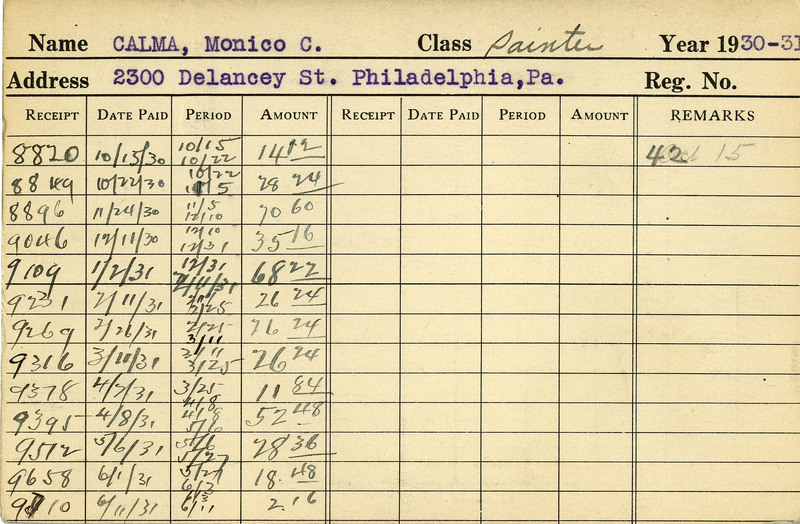 Name CALMA, Monico C. Class Painter Year 1930-31
Address 2300 Delancey St. Philadelphia,Pa. Reg. No.
RECEIPT DATE PAID PERIOD AMOUNT RECEIPT DATE PAID PERIOD AMOUNT REMARKS
8820 10/15/30 10/15 10/22 14 12 42 Oct 15
8849 10/22/30 10/22 11/5 28 24
8896 11/24/30 11/5 12/10 70 60
9046 12/11/30 12/10 12/31 35 16
9109 1/2/31 12/31 2/11/31 68 22
9231 2/11/31 2/11 2/25 26 24
9269 2/26/31 2/25 3/11 26 24
9316 3/11/31 3/11 3/25 26 24
9378 4/7/31 3/25 4/8 11 84
9395 4/8/31 4/8 5/6 52 48
9512 5/6/31 5/6 5/27 28 36
9658 6/1/31 5/27 6/3 18 48
9710 6/11/31 6/3 6/11 2 16